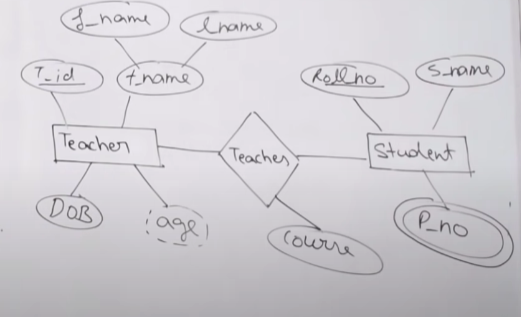 f_name
lname
T_id
t_name
Roll no
S_name
Teacher
Teaches
Student
DOB
age
course
P_no